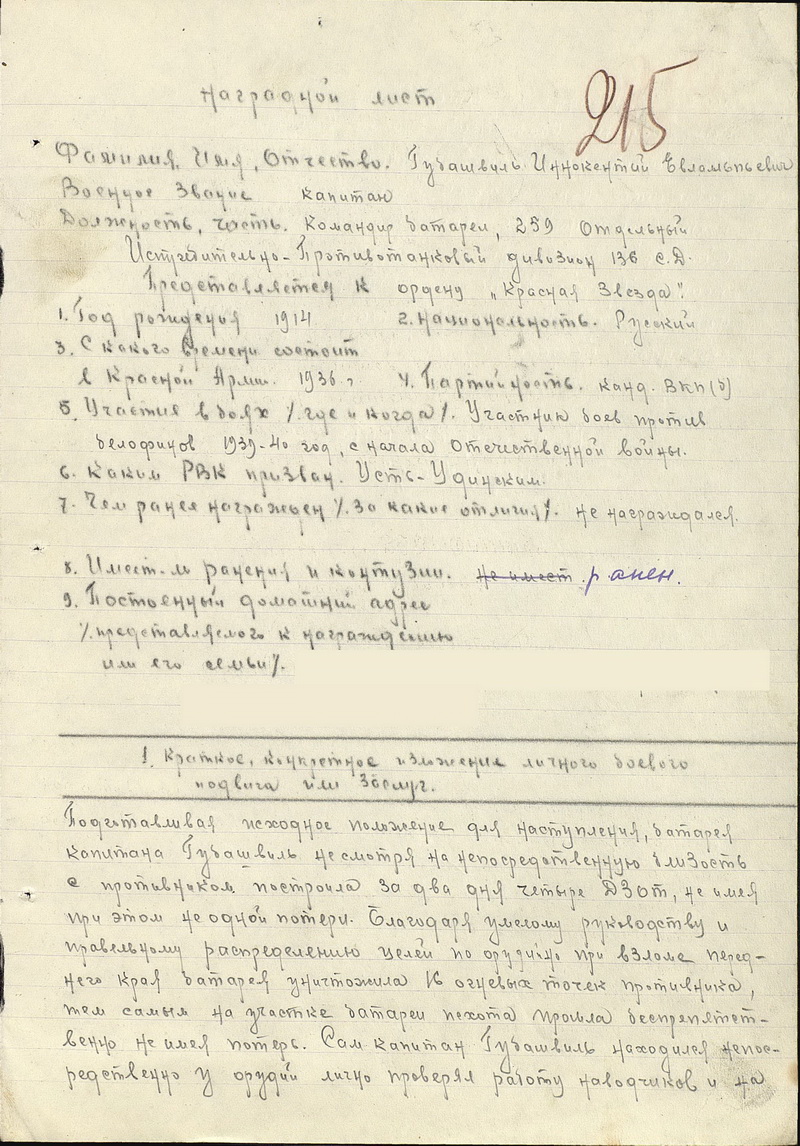 Наградной лист
215
Фамилия, Имя, Отчество. Губашвиль Иннокентий Евлампьевич
Военное Звание капитан
Должность, часть. Командир батареи, 259 Отдельный
Истребительно-Противотанковый дивизион 136 С.Д.
Представляется к ордену „Красная Звезда".
1. Год рождения 1914 2. Национальность. Русский
3. С какого времени состоит
в Красной Арми. 1936 г 4. Партийность. канд. ВКП(б)
5. Участие в боях /. где и когда /. Участник боев против
белофинов 1939-40 год, с начала Отечественной войны.
6. Каким РВК призван. Усть-Удинским.
7. Чем ранее награжден /. За какие отличия /. не награждался.
8. Имеет-ли ранения и контузии. не имеет ранен.
9. Постоенный домашний адрес
/. представляемого к награждению
или его семьи /.
1. Краткое, конкретное изложение личного боевого
подвига или заслуг.
Подготавливая исходное положение для наступления, батарея
капитана Губашвиль несмотря на непосредственную близость
с противником построила за два дня четыре ДЗОТ, не имея
при этом не одной потери. Благодаря умелому руководству и
правельному распределению целей по орудийно при взломе перед-
него края батарея уничтожила 16 огневых точек противника,
тем самым на участке батареи пехота прошла беспрепятст-
венно не имея потерь. Сам капитан Губашвиль находился непос-
редственно у орудий лично проверял работу наводчиков и на